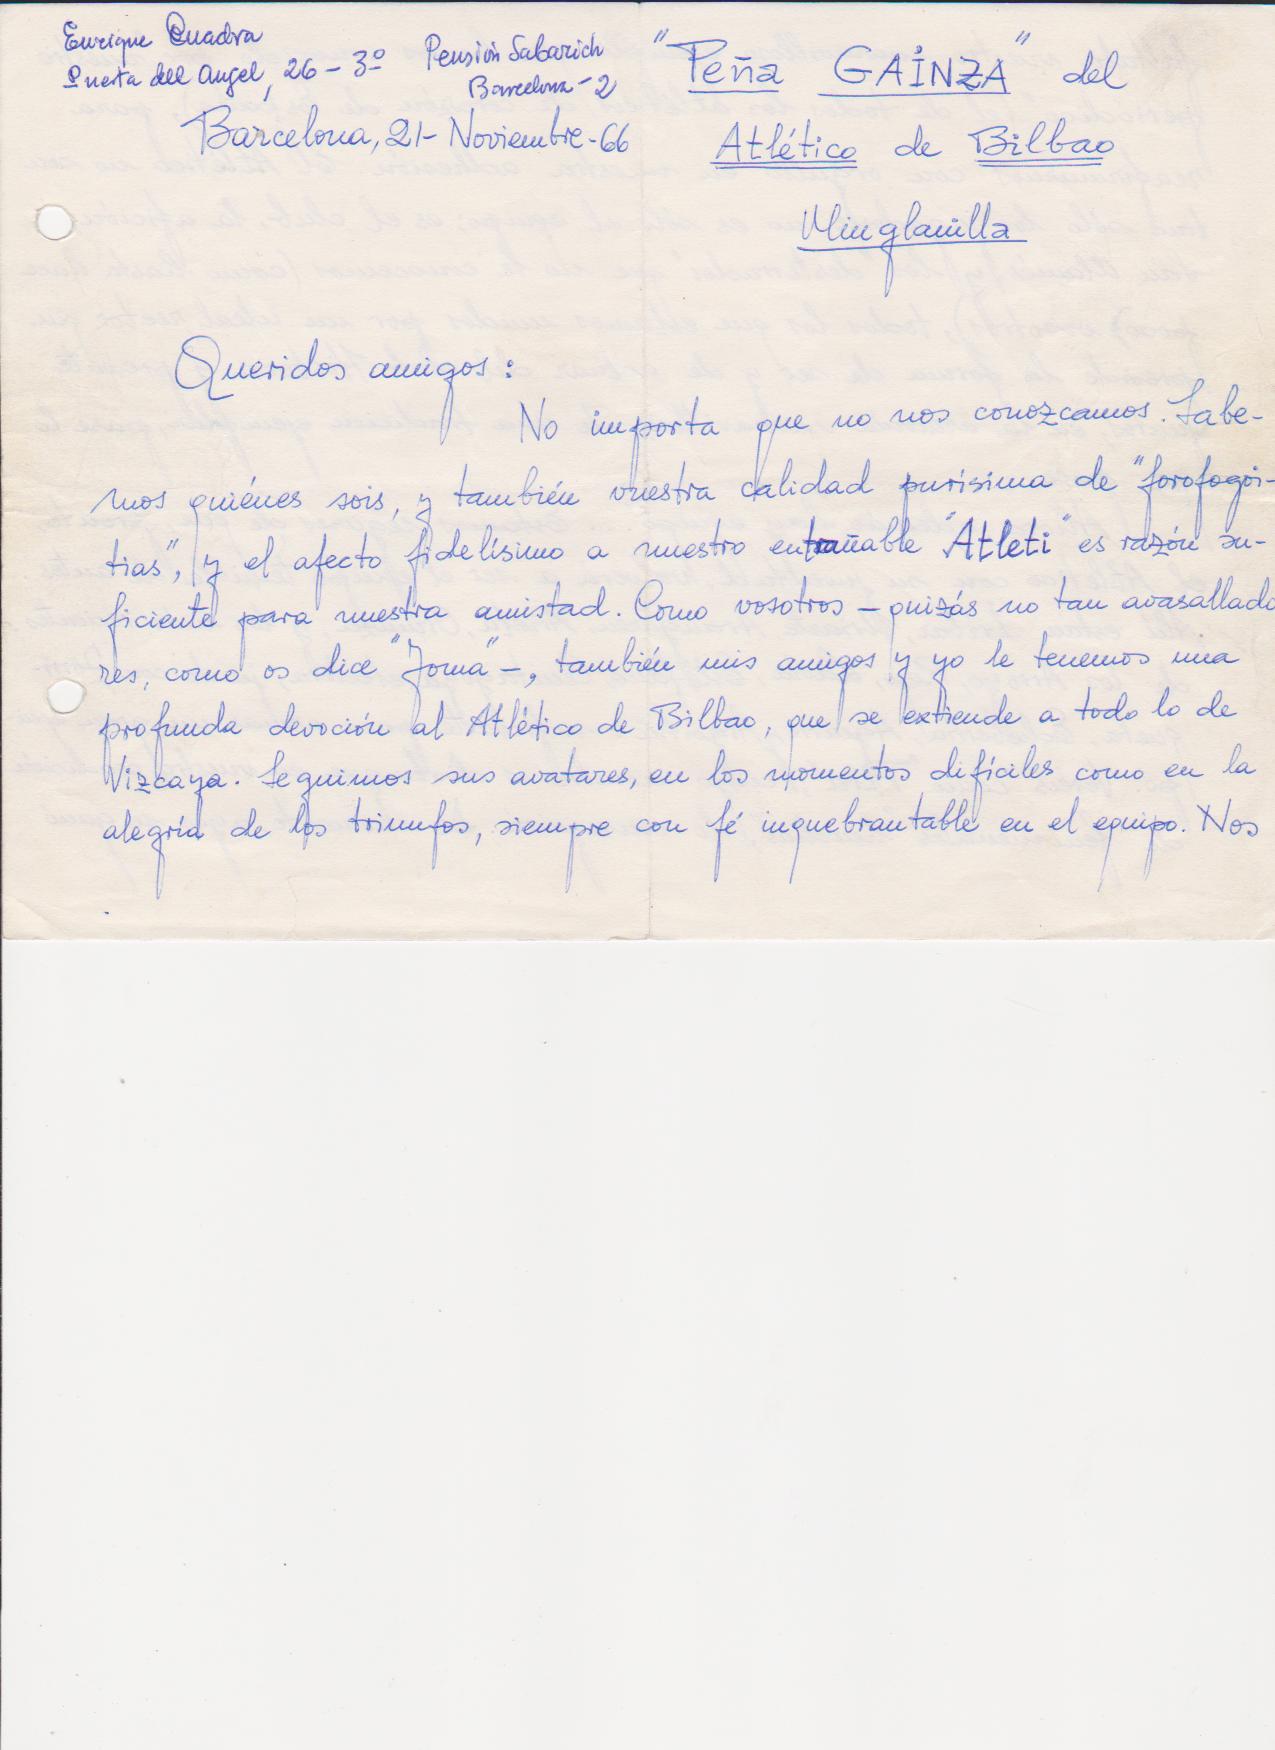 Enrique Cuadra
Puerta del Angel, 26 - 3º Pensión Sabarich
Barcelona - 2
Barcelona, 21 - Noviembre - 66
"Peña GAÍNZA" del
Atlético de Bilbao
Minglanilla
Queridos amigos:
No importa que no nos conozcamos. Sabe-
mos quiénes sois, y también vuestra calidad purísima de "forofogoi-
tias", y el afecto fidelísimo a nuestro entrañable "Atleti" es razón su-
ficiente para nuestra amistad. Como vosotros - quizás no tan avasallado
res, como os dice "Joma" -, también mis amigos y yo le tenemos una
profunda devoción al Atlético de Bilbao, que se extiende a todo lo de
Vizcaya. Seguimos sus avatares, en los momentos difíciles como en la
alegría de los triunfos, siempre con fé inquebrantable en el equipo. Nos